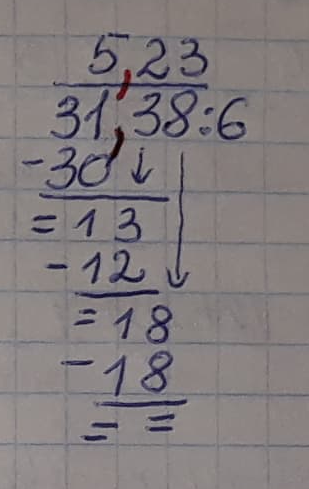 5,23
31,38:6
-30
=13
-12
=18
-18
= =